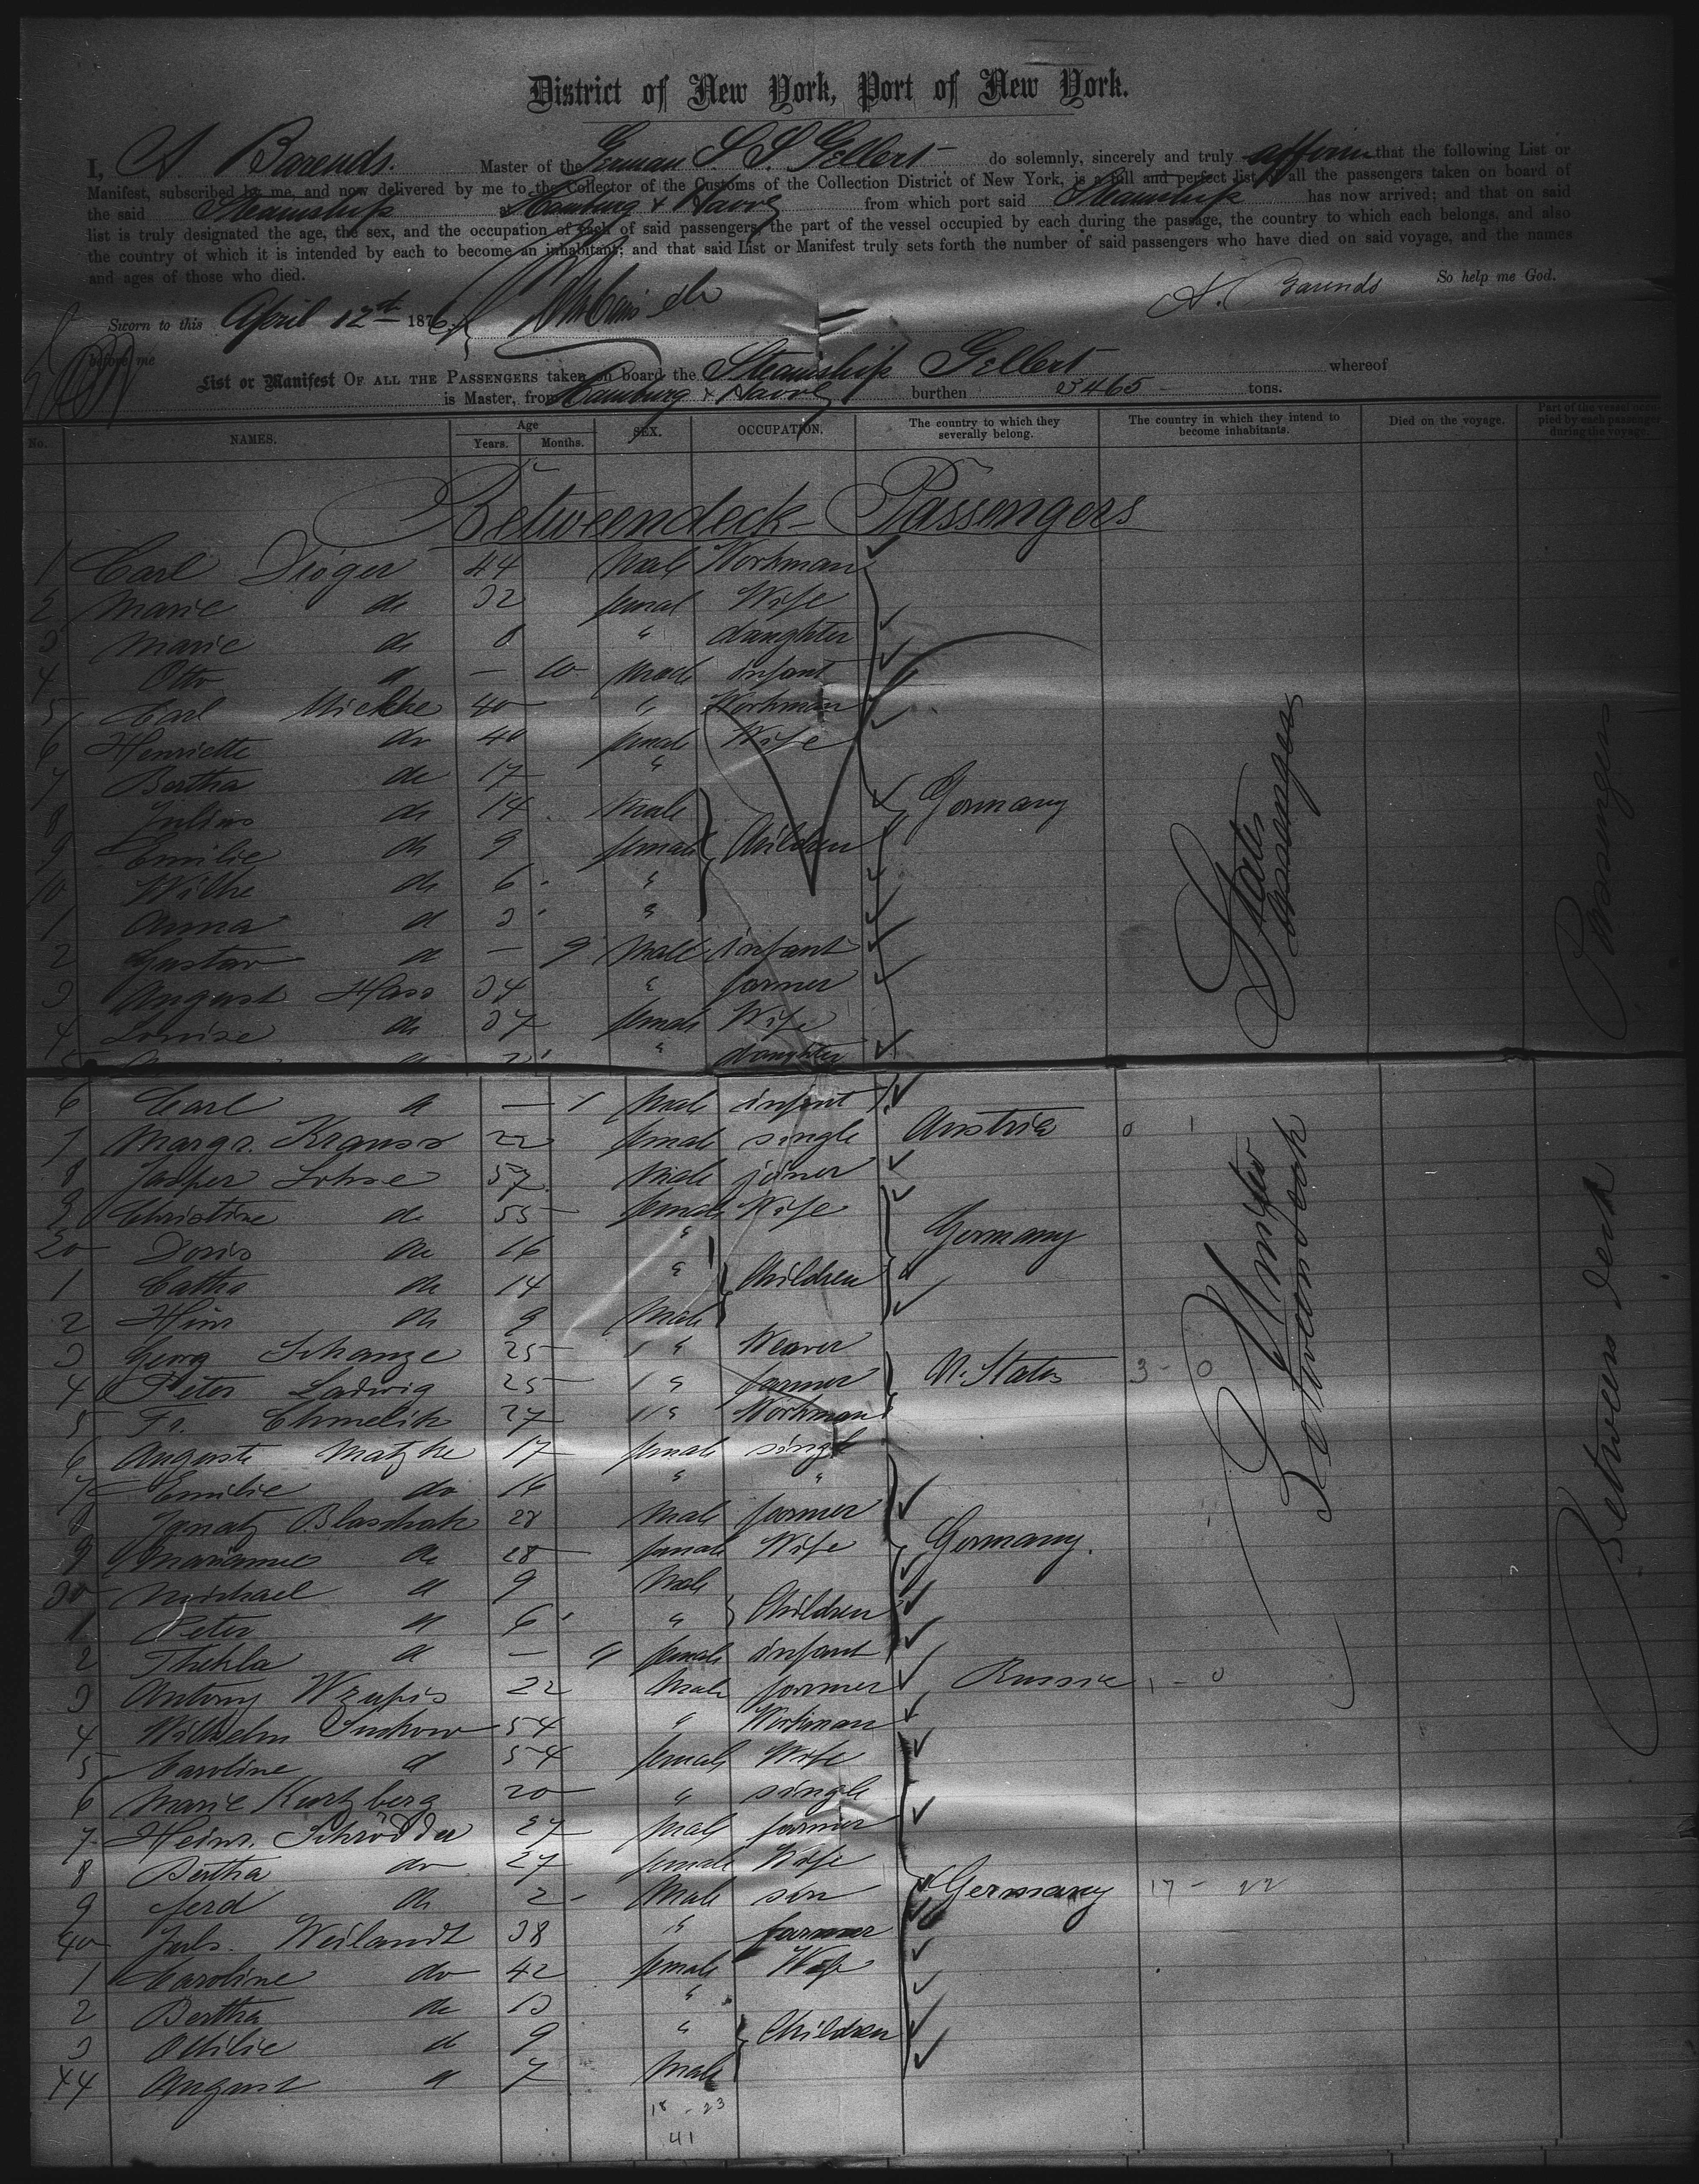 District of New York, Port of New York.
I, A. Barends. Master of the German S. S. Gellert do solemnly, sincerely and truly affirm that the following List or
Manifest, subscribed by me, and now delivered by me to the Collector of the Customs of the Collection District of New York, is a full and perfect list of all the passengers taken on board of
the said Steamship Hamburg & Havre from which port said Steamship has now arrived; and that on said
list is truly designated the age, the sex, and the occupation of each of said passengers, the part of the vessel occupied by each during the passage, the country to which each belongs, and also
the country of which it is intended by each to become an inhabitant; and that said List or Manifest truly sets forth the number of said passengers who have died on said voyage, and the names
and ages of those who died. So help me God.
A. Barends
Sworn to this April 12th 1876
before me
List or Manifest OF ALL THE PASSENGERS taken on board the Steamship Gellert whereof
is Master, from Hamburg & Havre burthen 3465 tons.
No. NAMES. Age Years. Months. SEX. OCCUPATION. The country to which they severally belong. The country in which they intend to become inhabitants. Died on the voyage. Part of the vessel occupied by each passenger during the voyage.
Betweendeck Passengers
1 Carl 44 Male Workman
2 Marie do 32 femal Wife
3 Marie do 8 " daughter
4 Otto d — 10 Male infant
5 Carl Mielke 40 " Workman
6 Henriette do 40 female Wife
7 Bertha do 17 "
8 Julius do 14 Male Germany
9 Emilie do 9 female Children
10 Wilhe do 6 "
1 Anna d 3 "
2 Gustav d — 9 Male infant
3 August Hass 34 " farmer
4 Louise do 37 female Wife
5 d " daughter
6 Carl d — 1 Male infant
7 Margr. Krauss 22 female single Austria 0 1
8 Jasper Lohse 57 Male joiner
9 Christine do 55 female Wife
20 Doris do 16 " Germany
1 Catha do 14 " Children
2 Hinr do 9 Male
3 Georg Schanze 25 " Weaver
4 Peter Ladwig 25 " farmer U. States 3 - 0
5 Fr. Chmelik 27 " Workman
6 Auguste Matzke 17 female single
7 Emilie do 16 " "
8 Ignatz Blaschak 28 Male farmer
9 Marianne do 28 female Wife Germany.
30 Michael d 9 Male
1 Peter d 6 " Children
2 Thekla d — 9 female infant
3 Antony 22 Male farmer Russia 1 - 0
4 Wilhelm Suckow 54 " Workman
5 Caroline d 54 female Wife
6 Marie Kurtzberg 20 " single
7 Heinr. Schrödder 27 Male farmer
8 Bertha do 27 female Wife
9 ferd do 2 Male son Germany 17 - 22
40 Weilandt 38 " farmer
1 Caroline do 42 female Wife
2 Bertha do 13 "
3 Ottilie do 9 " Children
44 August d 7 Male
18 - 23
41
States
Passengers
United
Betweendeck
Passengers
Betweens deck